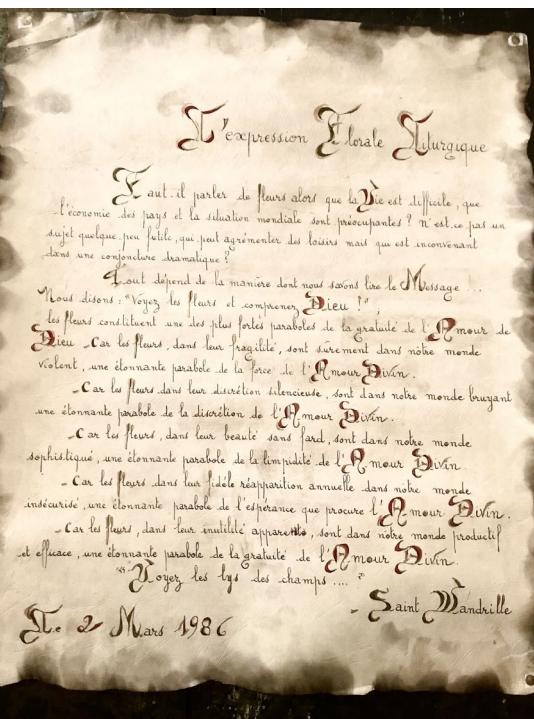 L'expression Florale Liturgique
Faut-il parler de fleurs alors que la Vie est difficile, que
l'économie des pays et la situation mondiale sont préocupantes ? N'est-ce pas un
sujet quelque peu futile, qui peut agrémenter des loisirs mais qui est inconvenant
dans une conjoncture dramatique ?
Tout dépend de la manière dont nous savons lire le Message ...
Nous disons : "Voyez les fleurs et comprenez Dieu !"
les fleurs constituent une des plus fortes paraboles de la gratuité de l'Amour de
Dieu - Car les fleurs, dans leur fragilité, sont sûrement dans nôtre monde
violent, une étonnante parabole de la force de l'Amour Divin.
- Car les fleurs dans leur discrétion silencieuse, sont dans notre monde bruyant
une étonnante parabole de la discrétion de l'Amour Divin.
- Car les fleurs, dans leur beauté sans fard, sont dans notre monde
sophistiqué, une étonnante parabole de la limpidité de l'Amour Divin
- Car les fleurs dans leur fidèle réapparition annuelle dans nôtre monde
insécurisé, une étonnante parabole de l'espérance que procure l'Amour Divin.
- Car les fleurs, dans leur inutilité apparente, sont dans nôtre monde productif
et efficace, une étonnante parabole de la gratuité de l'Amour Divin.
"Voyez les lys des champs .... "
- Saint Wandrille
Le 2 Mars 1986